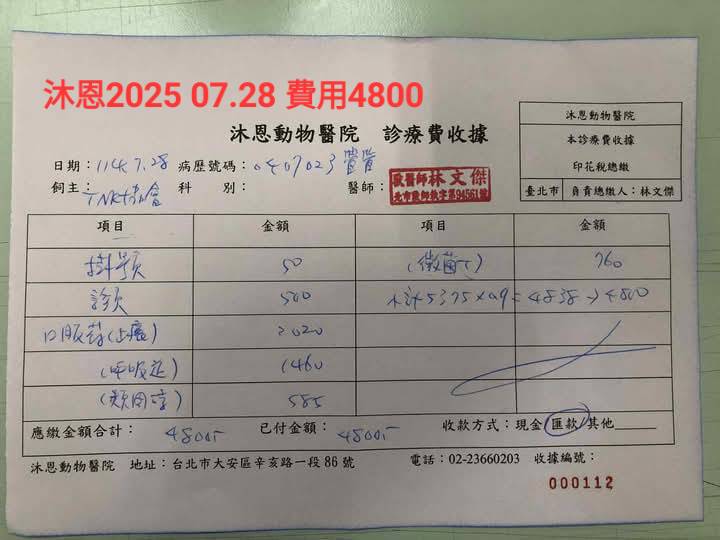 沐恩2025 07.28 費用4800
沐恩動物醫院 診療費收據
沐恩動物醫院
本診療費收據
印花稅總繳
臺北市 負責總繳人：林文傑
日期：114.7.28 病歷號碼：0407023
飼主：TNR協會 科 別： 醫師： 獸醫師林文傑
項目 金額 項目 金額
掛號 50 (黴菌) 760
診費 500 9折5375x0.9=4838→4800
口服藥(止癢) 2020
(呼吸道) 1460
(類固醇) 585
應繳金額合計： 4800 已付金額： 4800 收款方式：現金 匯款 其他
沐恩動物醫院 地址：台北市大安區辛亥路一段86號 電話：02-23660203 收據編號：
000112